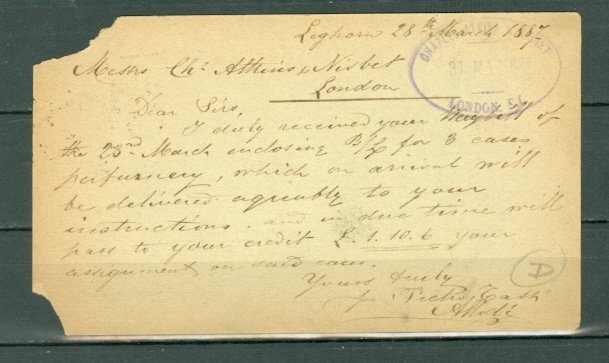 Leghorn 28th March 1887
Messrs Chs Atkins & Nisbet
London
LONDON E.C.
Dear Sirs,
I duly received your of
the 23rd March enclosing B/L for 3 cases
perfumery, which on arrival will
be delivered agreably to your
instructions. and in due time will
pass to your credit £. 1. 10. 6 your
assignment on said cases.
Yours duly
D